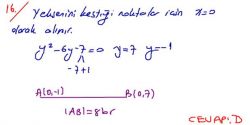 16. Y eksenini kestiği noktalar için x=0
olarak alınır.
y²-6y-7=0 y=7 y=-1
-7+1
A(0,-1) B(0,7)
|AB|=8br
CEVAP:D